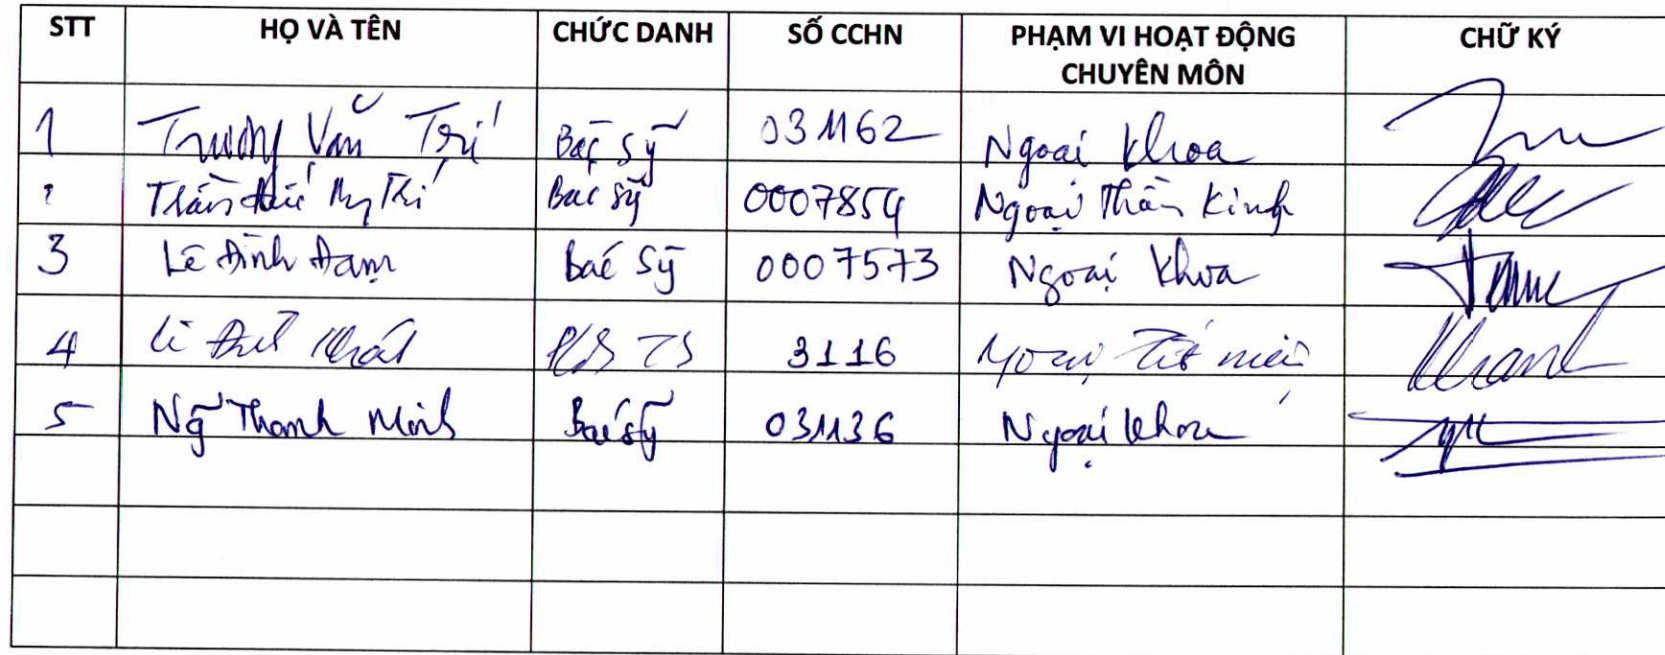 STT HỌ VÀ TÊN CHỨC DANH SỐ CCHN PHẠM VI HOẠT ĐỘNG CHUYÊN MÔN CHỮ KÝ
1 Trương Văn Trí Bác sỹ 031162 Ngoại khoa
Trần Đức Trí Bác sỹ 0007854 Ngoại Thần Kinh
3 Lê Đình Đạm Bác sỹ 0007573 Ngoại khoa
4 Lê Đình Khánh PGS TS 3116 Ngoại Tiết niệu Khanh
5 Ng Thanh Minh Bác sỹ 031136 Ngoại khoa